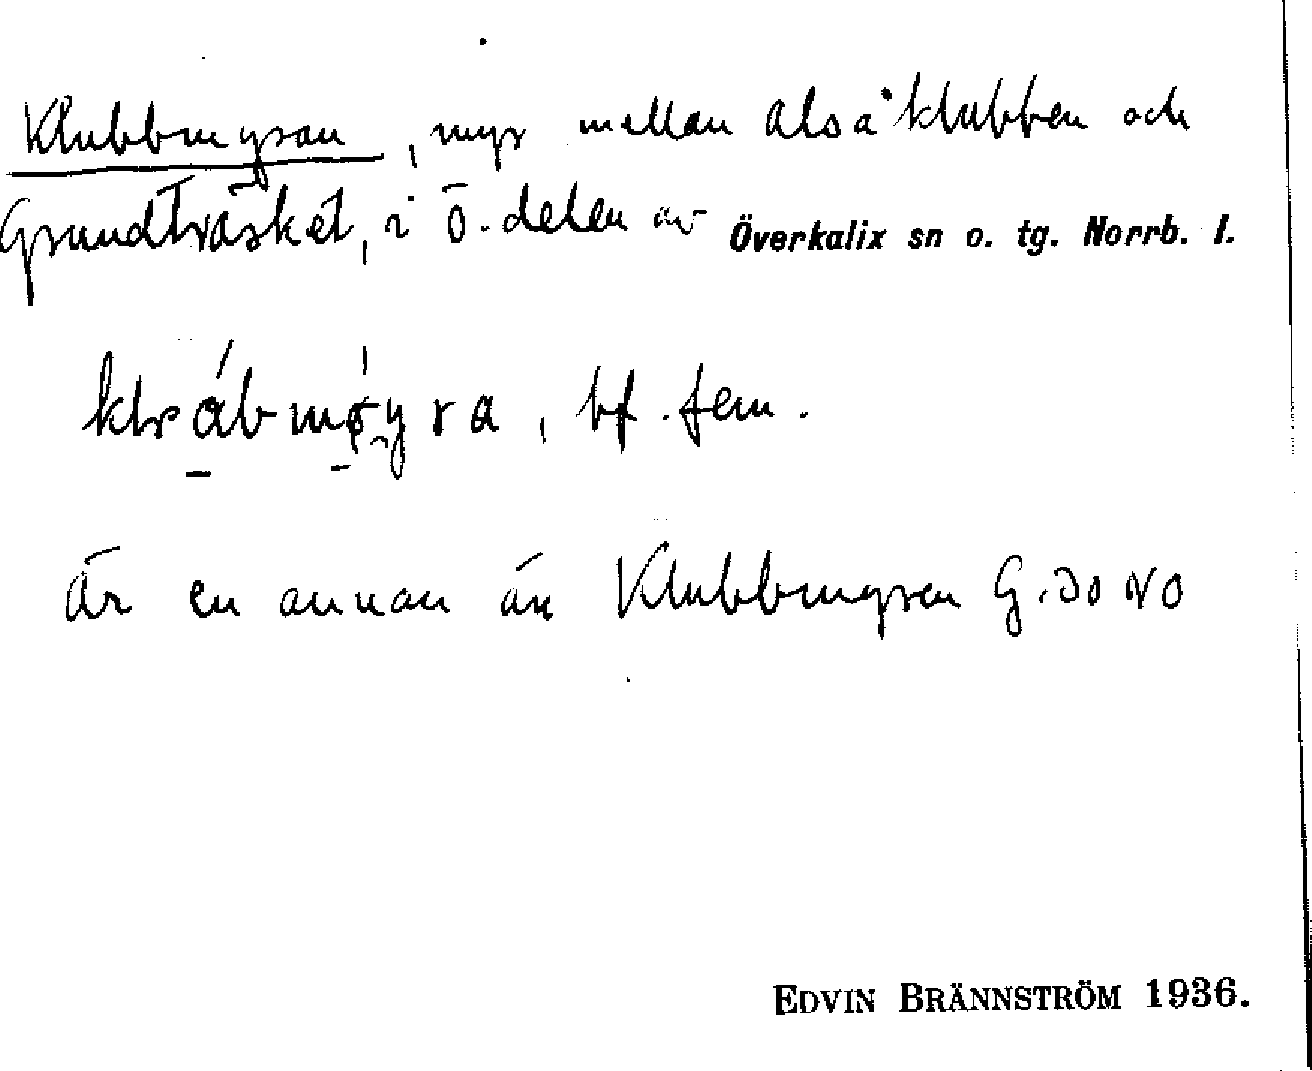 Klubbmyran, myr mellan Alsåklubben och
Grundträsket, i ö. delen av Överkalix sn o. tg. Norrb. l.
bf. fem.
Är en annan än Klubbmyren G. 30 NO
EDVIN BRÄNNSTRÖM 1936.